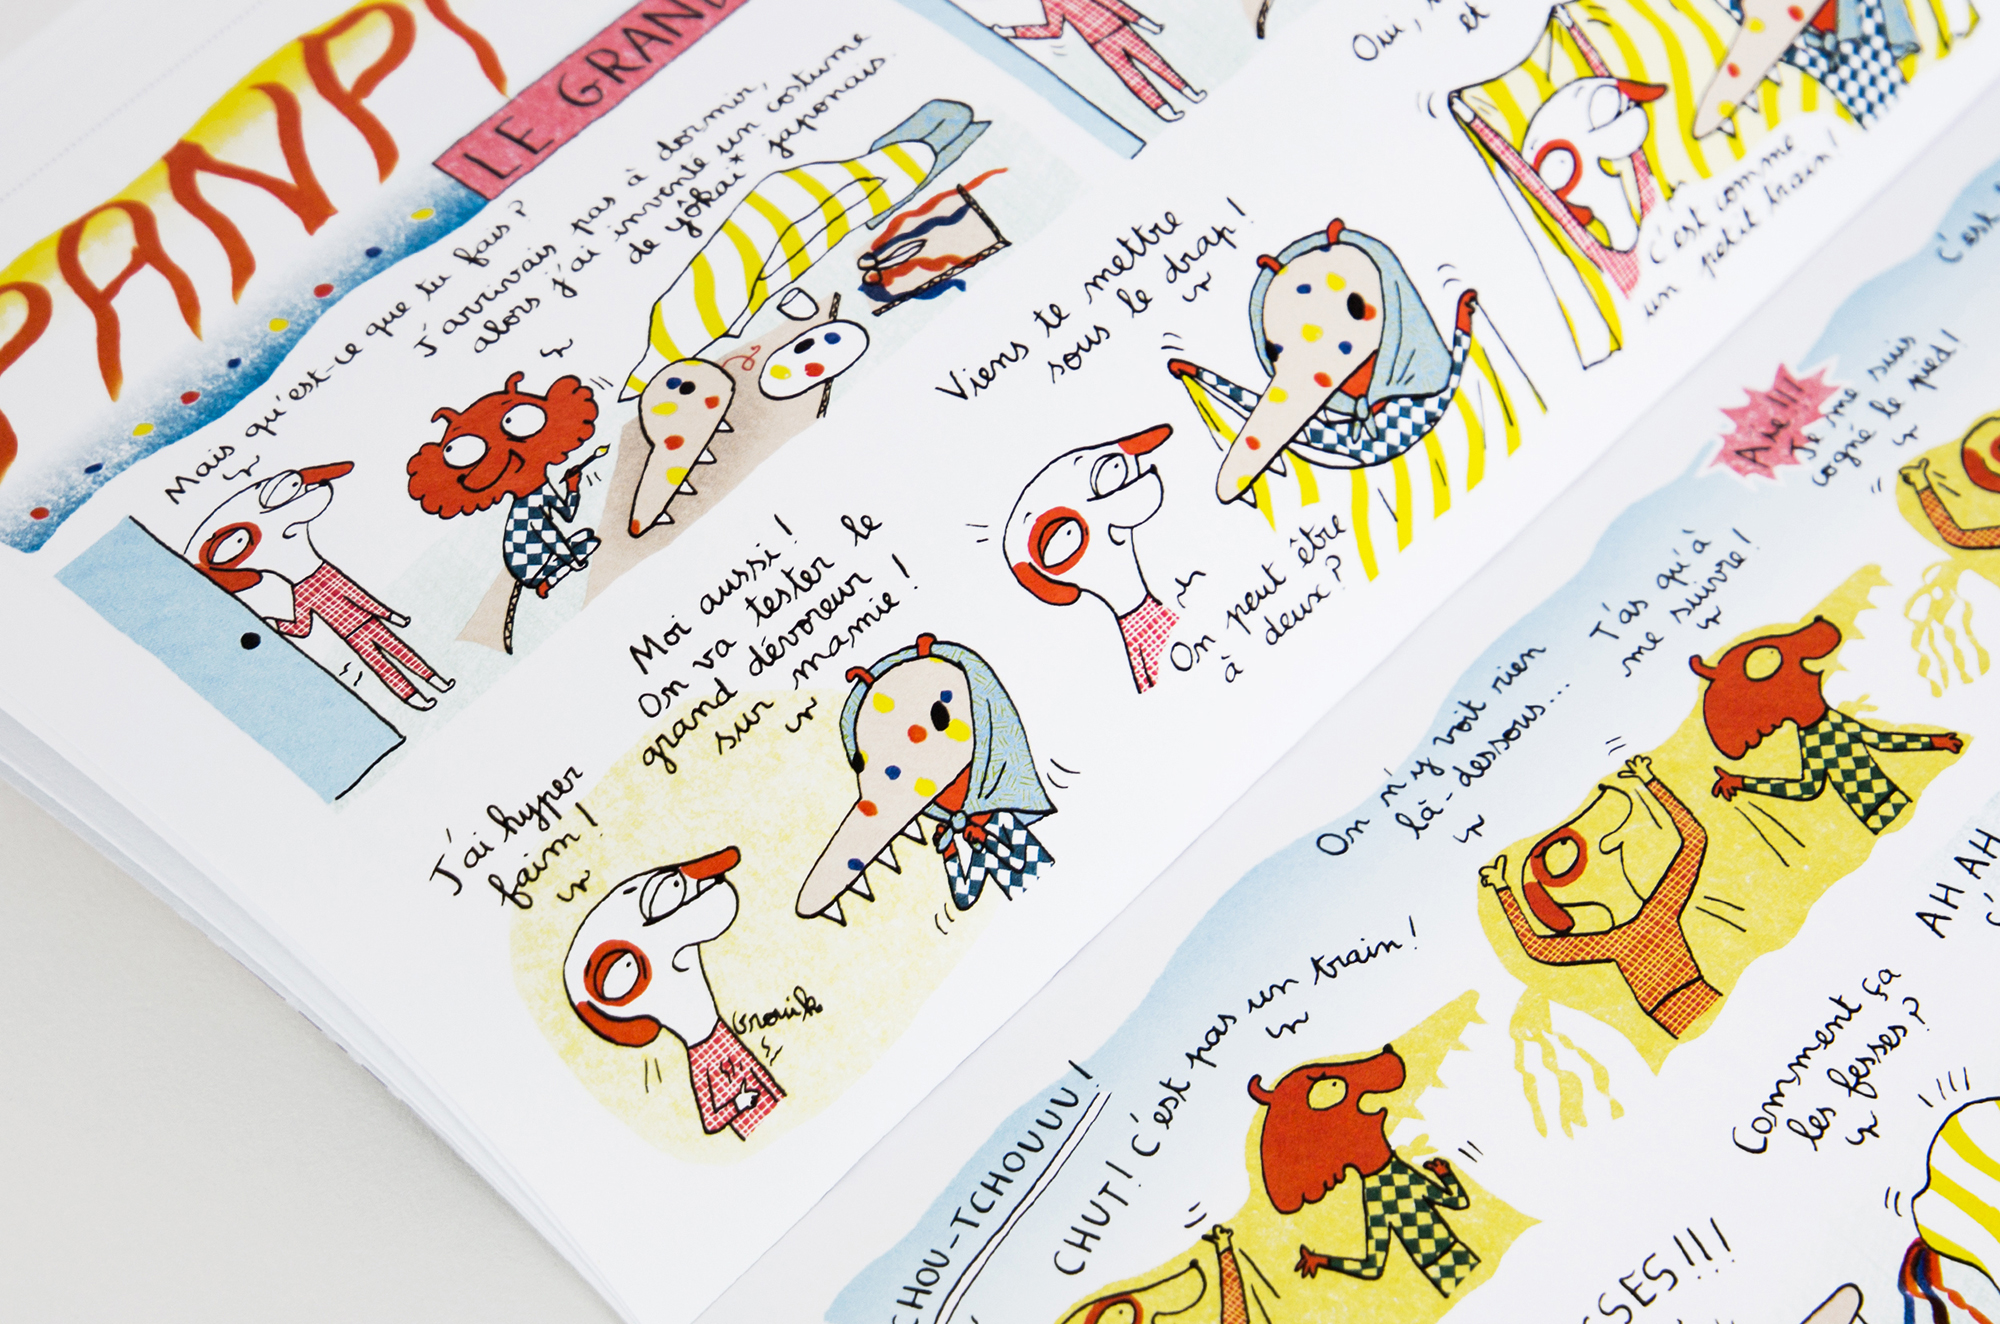 PANPI
LE GRAND
Mais qu'est-ce que tu fais ?
J'arrivais pas à dormir,
alors j'ai inventé un costume
de yôkai* japonais.
Oui,
et
Viens te mettre
sous le drap !
On peut être
à deux ?
C'est comme
un petit train !
J'ai hyper
faim !
Grouik
Moi aussi !
On va tester le
grand dévoreur
sur mamie !
C'est
Aïe !!!
Je me suis
cogné le pied !
T'as qu'à
me suivre !
On n'y voit rien
là-dessous...
CHOU-TCHOUUU !
CHUT ! C'est pas un train !
AH AH
Comment ça
les fesses ?
SSES !!!